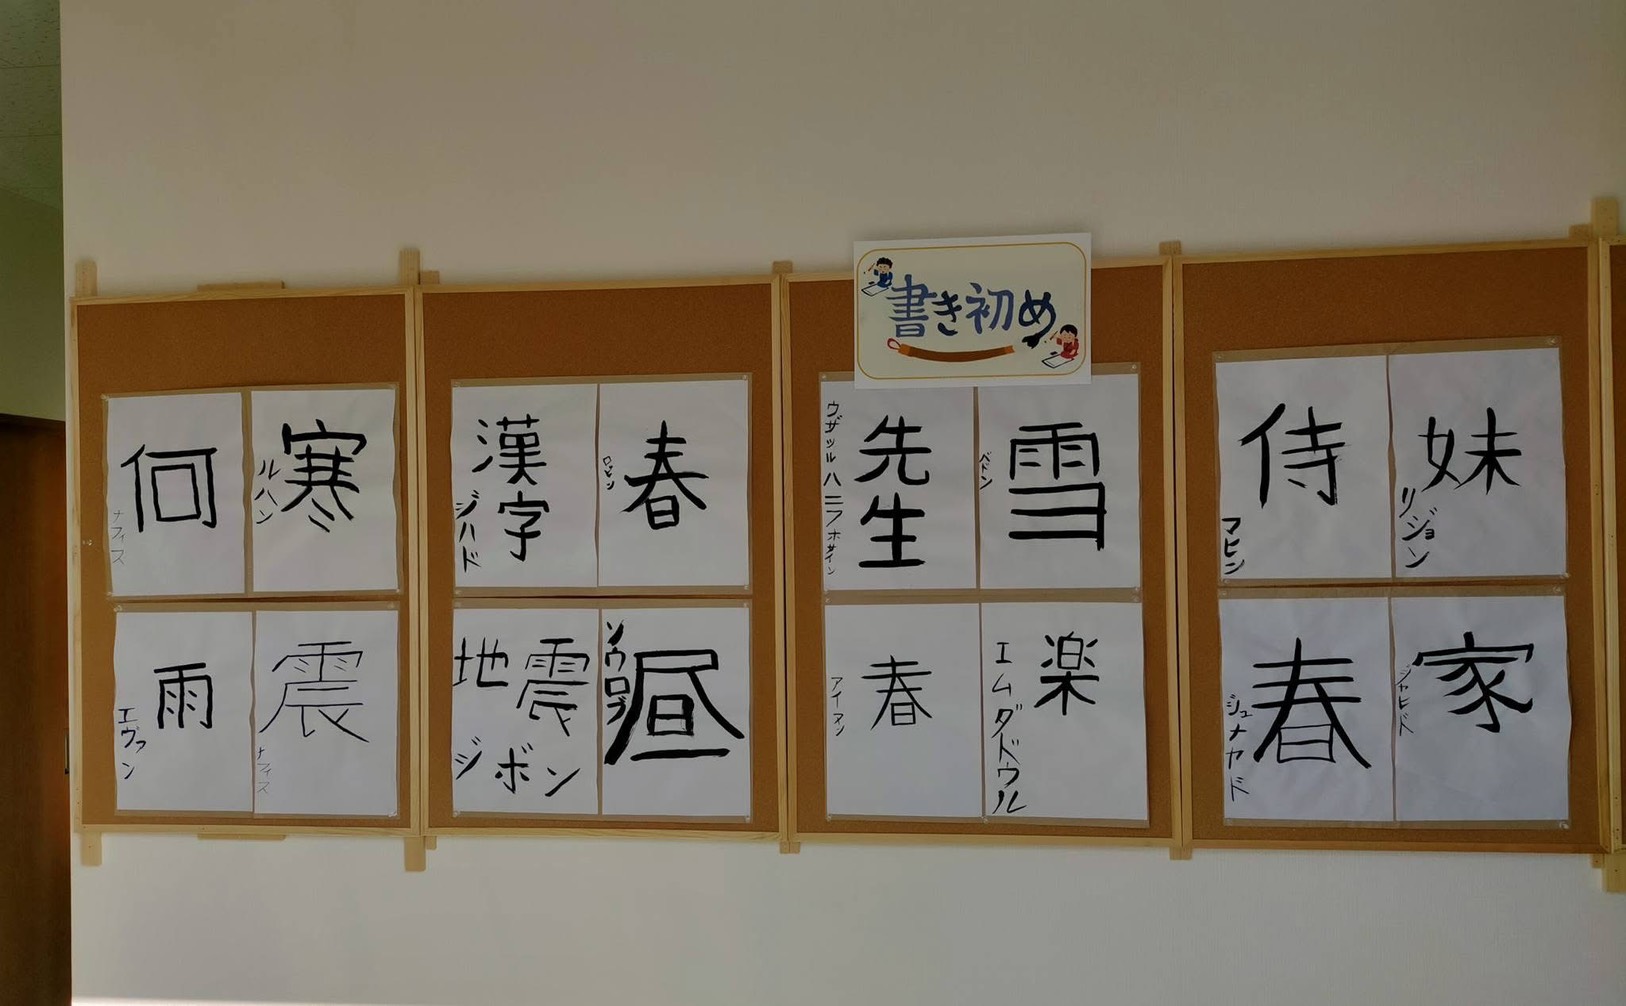 書き初め
何
ナフィス
寒
ルハン
雨
エヴァン
震
ナフィス
漢字
ジハド
春
ロビン
地震
ジボン
昼
ソウロブ
先生
ウザッル ハニフ ホサイン
雪
ベドン
春
アイアン
楽
エムダドウル
侍
マヒン
妹
リジョン
春
ジュナヤド
家
ジャヒド